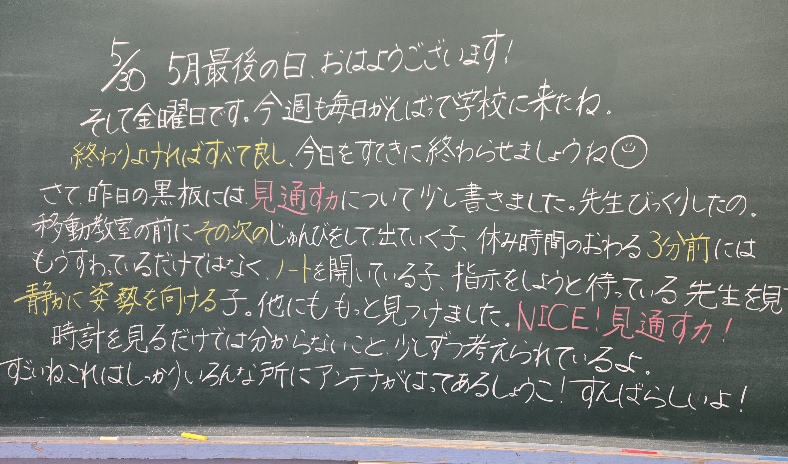 5/30 5月最後の日、おはようございます!
そして金曜日です。今週も毎日がんばって学校に来たね。
終わりよければすべて良し、今日をすてきに終わらせましょうね
さて、昨日の黒板には、見通す力について少し書きました。先生びっくりしたの。
移動教室の前にその次のじゅんびをして出ていく子、休み時間のおわる3分前には
もうすわっているだけではなく、ノートを開いている子、指示をしようと待っている先生を見て
静かに姿勢を向ける子。他にももっと見つけました。NICE!見通す力!
時計を見るだけでは分からないこと、少しずつ考えられているよ。
すごいねこれはしっかりいろんな所にアンテナがはってあるしょうこ!すんばらしいよ!